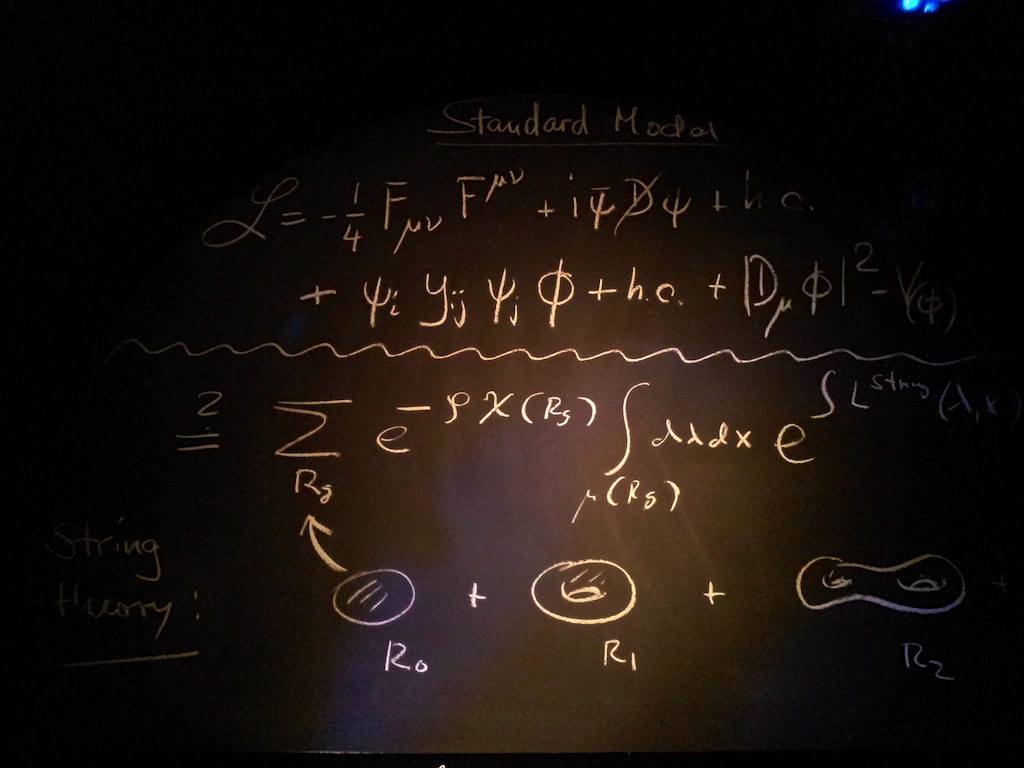 Standard Model
ℒ = -1/4 F_μν F^μν + i ψ̄ D̸ ψ + h.c.
+ ψ_i y_ij ψ_j ϕ + h.c. + |D_μ ϕ|^2 - V(ϕ)
?= Σ e^{-φ χ(R_g)} ∫ dλdx e^{∫ L^{String}(λ,x)}
R_g μ(R_g)
String
theory:
+ + +
R_0 R_1 R_2